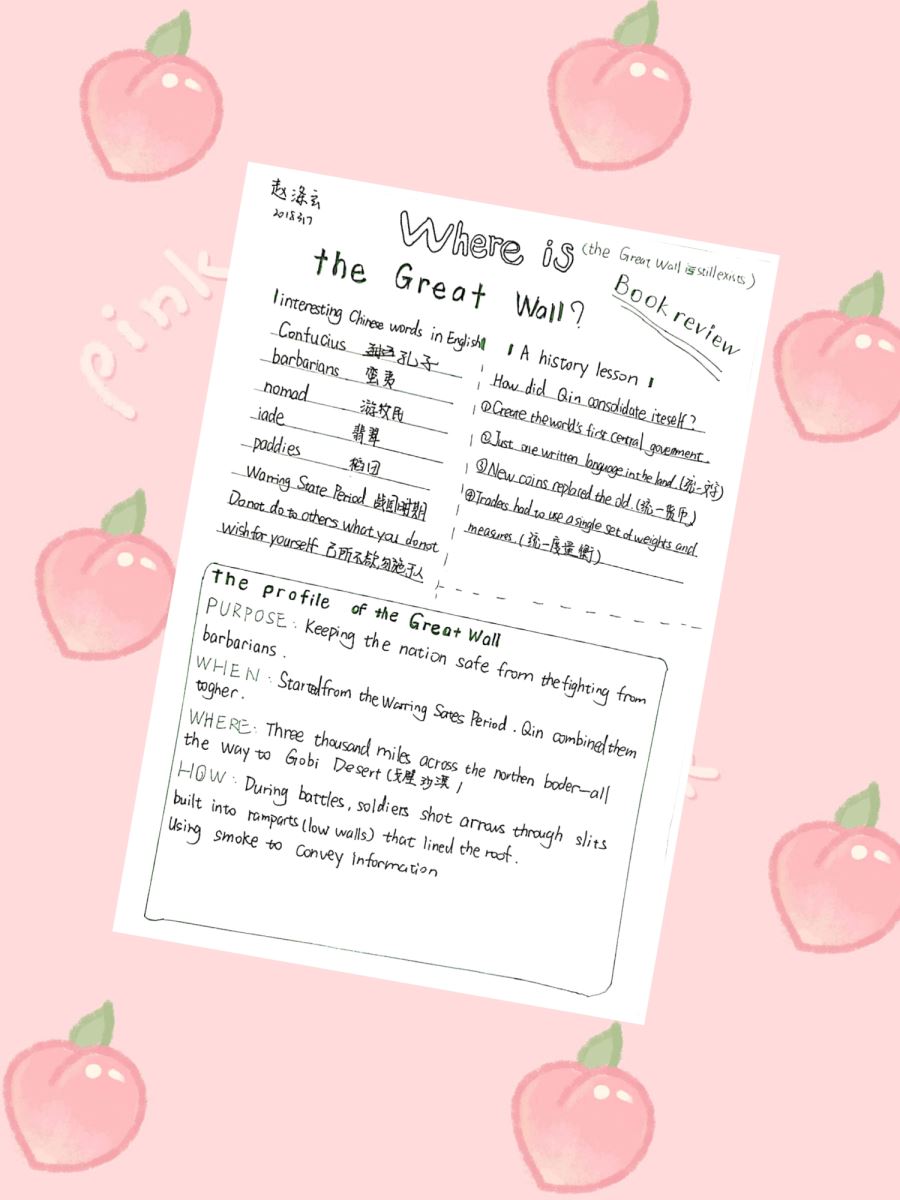 赵涤玄
2018317
Where is
(the Great Wall is still exists)
the Great Wall?
Book review
interesting Chinese words in English
Confucius 孔子
barbarians 蛮夷
nomad 游牧民
jade 翡翠
paddies 稻田
Warring State Period 战国时期
Do not do to others what you do not
wish for yourself 己所不欲勿施于人
A history lesson
How did Qin consolidate iteself?
①Create the world's first central goverment.
②Just one written language in the land.(统一文字)
③New coins replaced the old.(统一货币)
④Traders had to use a single set of weights and
measures.(统一度量衡)
the profile of the Great Wall
PURPOSE: Keeping the nation safe from the fighting from
barbarians.
WHEN: Started from the Warring Sates Period. Qin combined them
togher.
WHERE: Three thousand miles across the northen boder—all
the way to Gobi Desert (戈壁沙漠)
HOW: During battles, soldiers shot arrows through slits
built into ramparts (low walls) that lined the roof.
Using smoke to convey information
pink